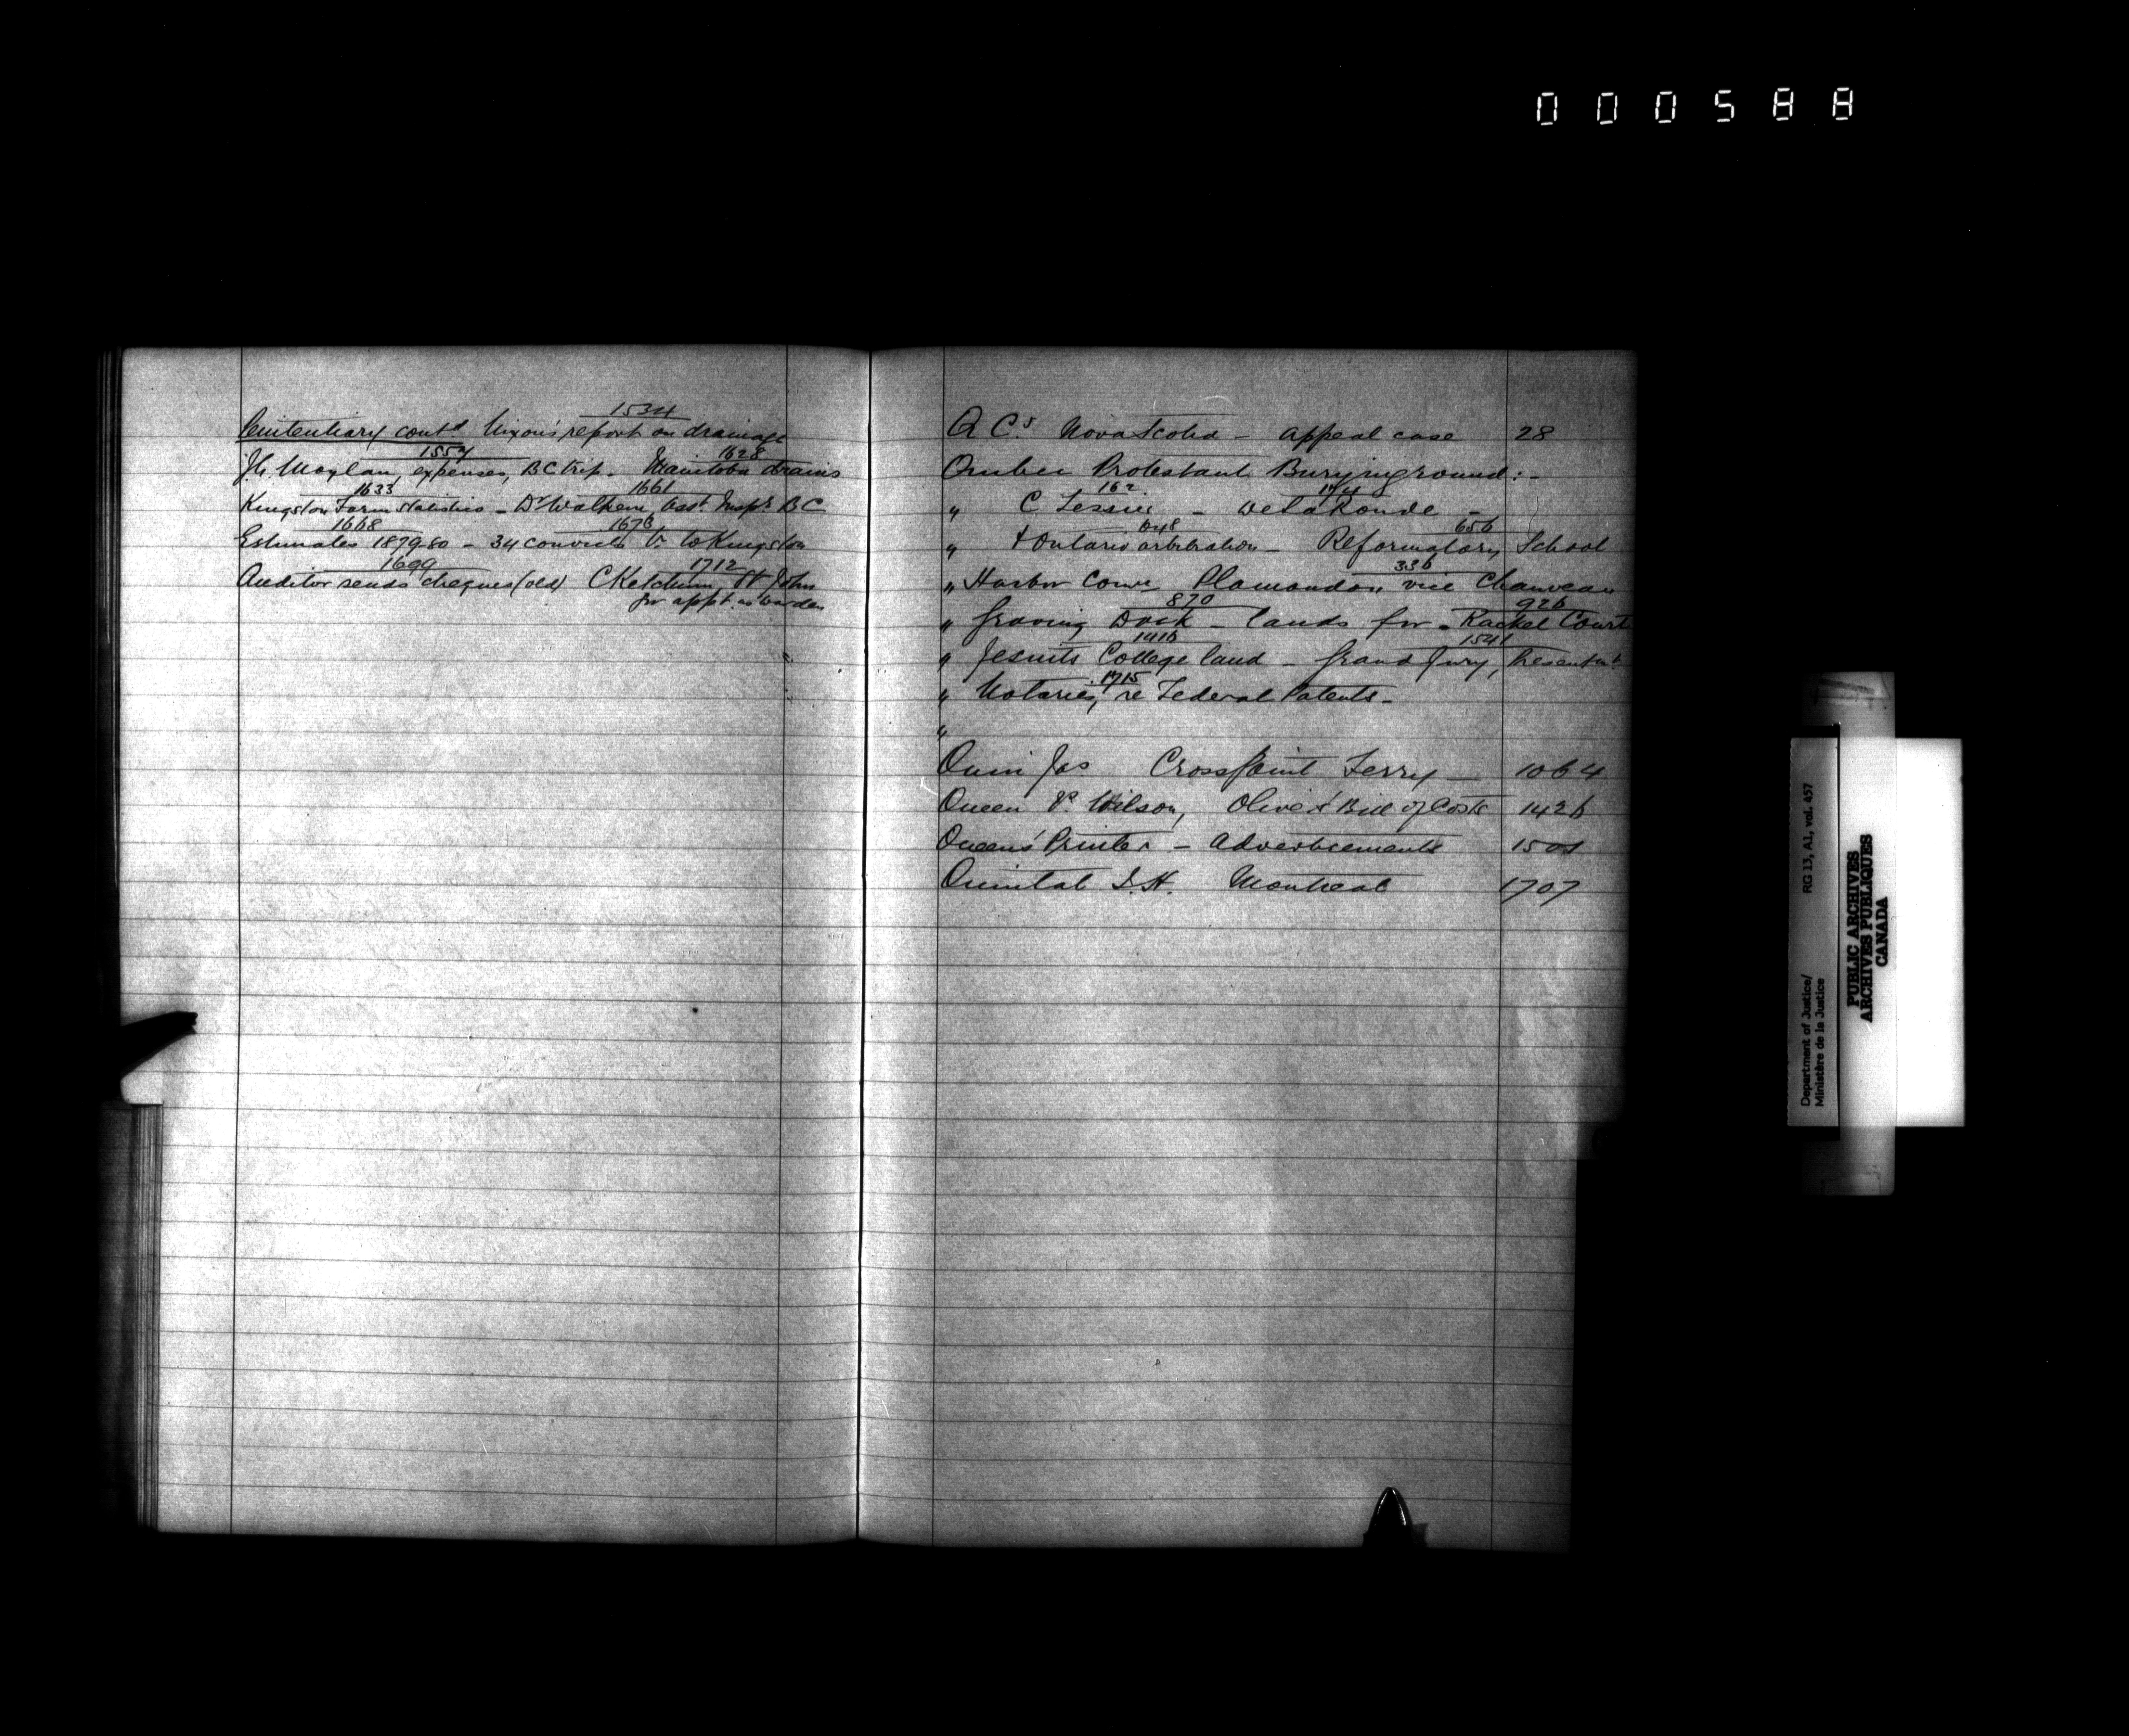 000588
1534
Penitentiary contd Nixon's report on drainage
1554 1628
J.G. Moylan, expenses, BC trip - Manitoba drains
1633 1661
Kingston Farm statistics - Dr Walkem, Asst Inspr BC
1668 1676
Estimates 1879-80 - 34 convicts to Kingston
1699 1712
Auditor sends cheques (old) C Ketchum St John
for appt. as warden
Q C.s Nova Scotia - appeal case 28
Quebec Protestant Burying ground : -
162
" C Tessier - De La Ronde -
648 656
" & Ontario arbitration - Reformatory School
336
" Harbor Comr Plamondon vice Chauveau
870 926
" Graving Dock - lands for - Rachel Court
1416 1541
" Jesuits College land - Grand Jury, Presentmt
1715
" Notaries, re Federal Patents -
"
Quin Jas Cross Point Ferry - 1064
Queen v. Wilson, Bill of Costs 1426
Queen's Printer - Advertisements
Quintal Montreal 1707
Department of Justice/
Ministère de la Justice
RG 13, A1, vol. 457
PUBLIC ARCHIVES
ARCHIVES PUBLIQUES
CANADA